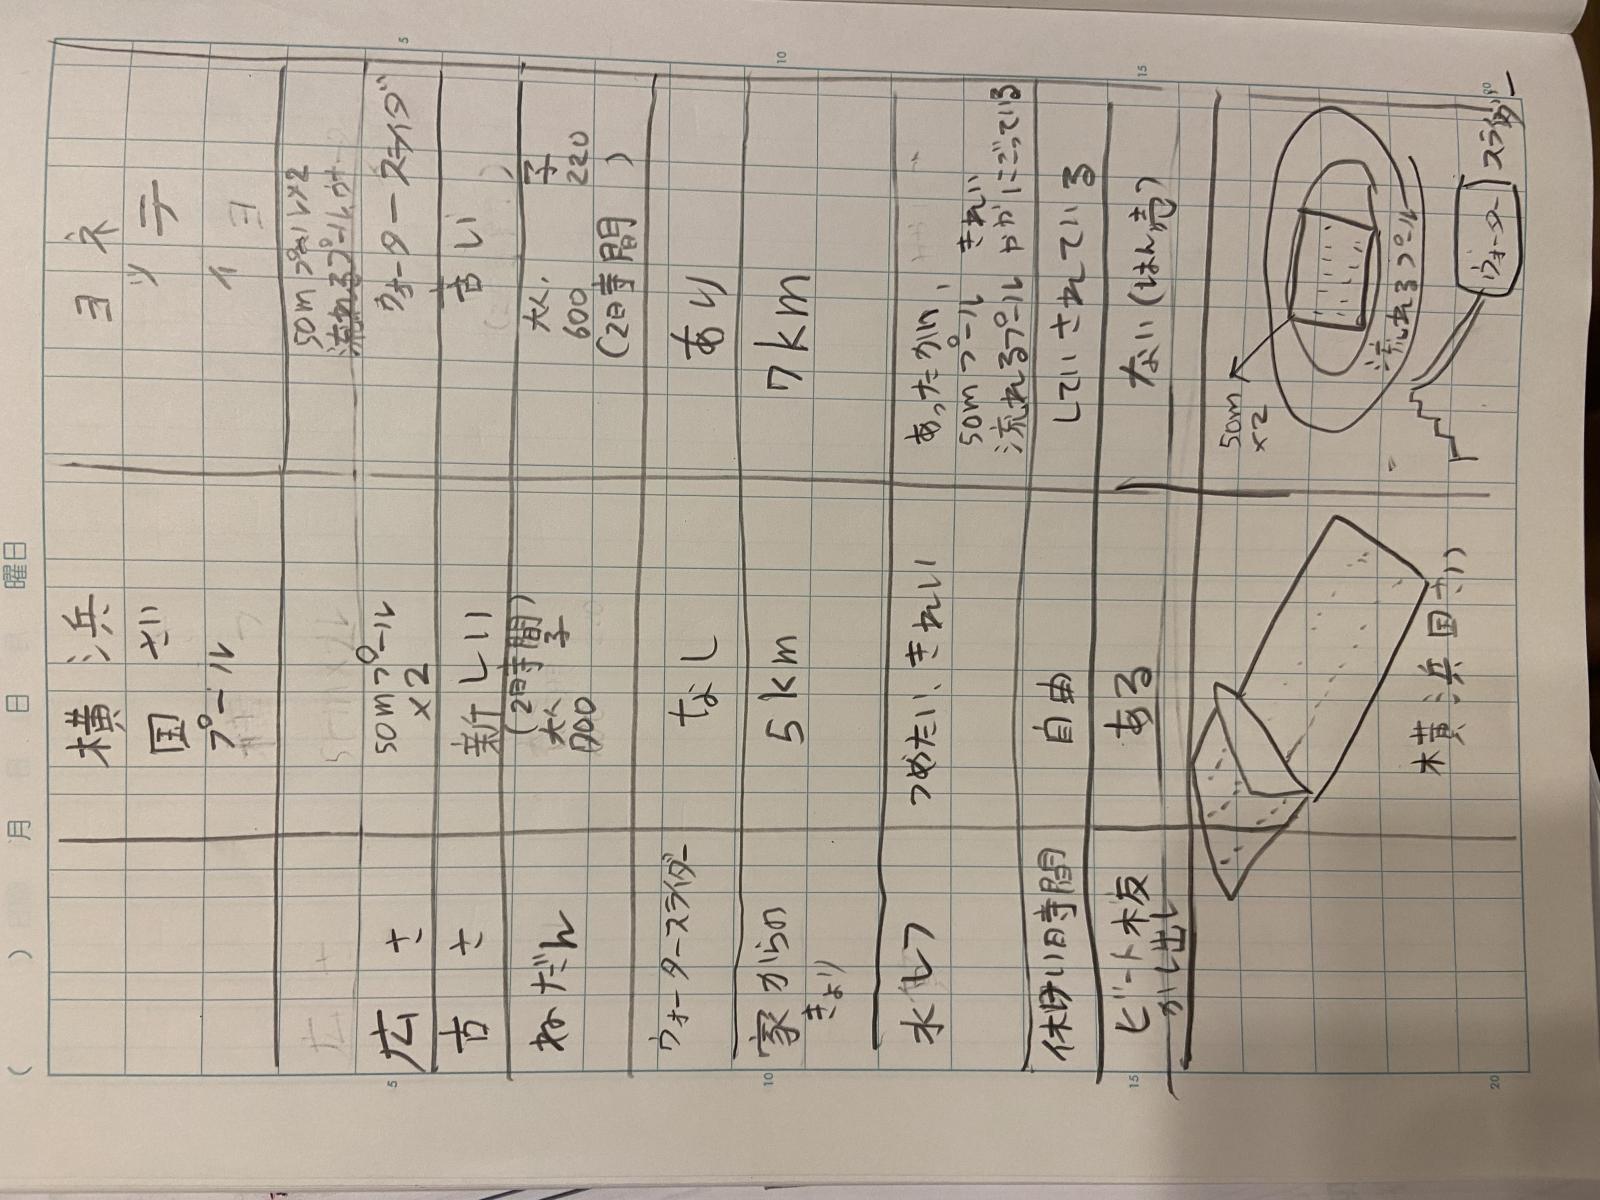 月 日 曜日
横浜
国さい
プール
ヨネ
ッテ
イヨ
広さ
50mプール
×2
50mプール×2
流れるプール
ウォータースライダ
古さ
新しい
古い
ねだん
(2時間)
大人 子
大人 子
600 220
(2時間)
ウォータースライダー
なし
あり
家からの
きょり
5km
7km
水しつ
つめたい、きれい
あったかい、
50mプール きれい
流れるプール ややにごっている
休けい時間
自由
していされている
ビート板
かし出し
ある
ない(はん売)
50m
×2
流れるプール
ウォーター
スライダー
横浜国さい